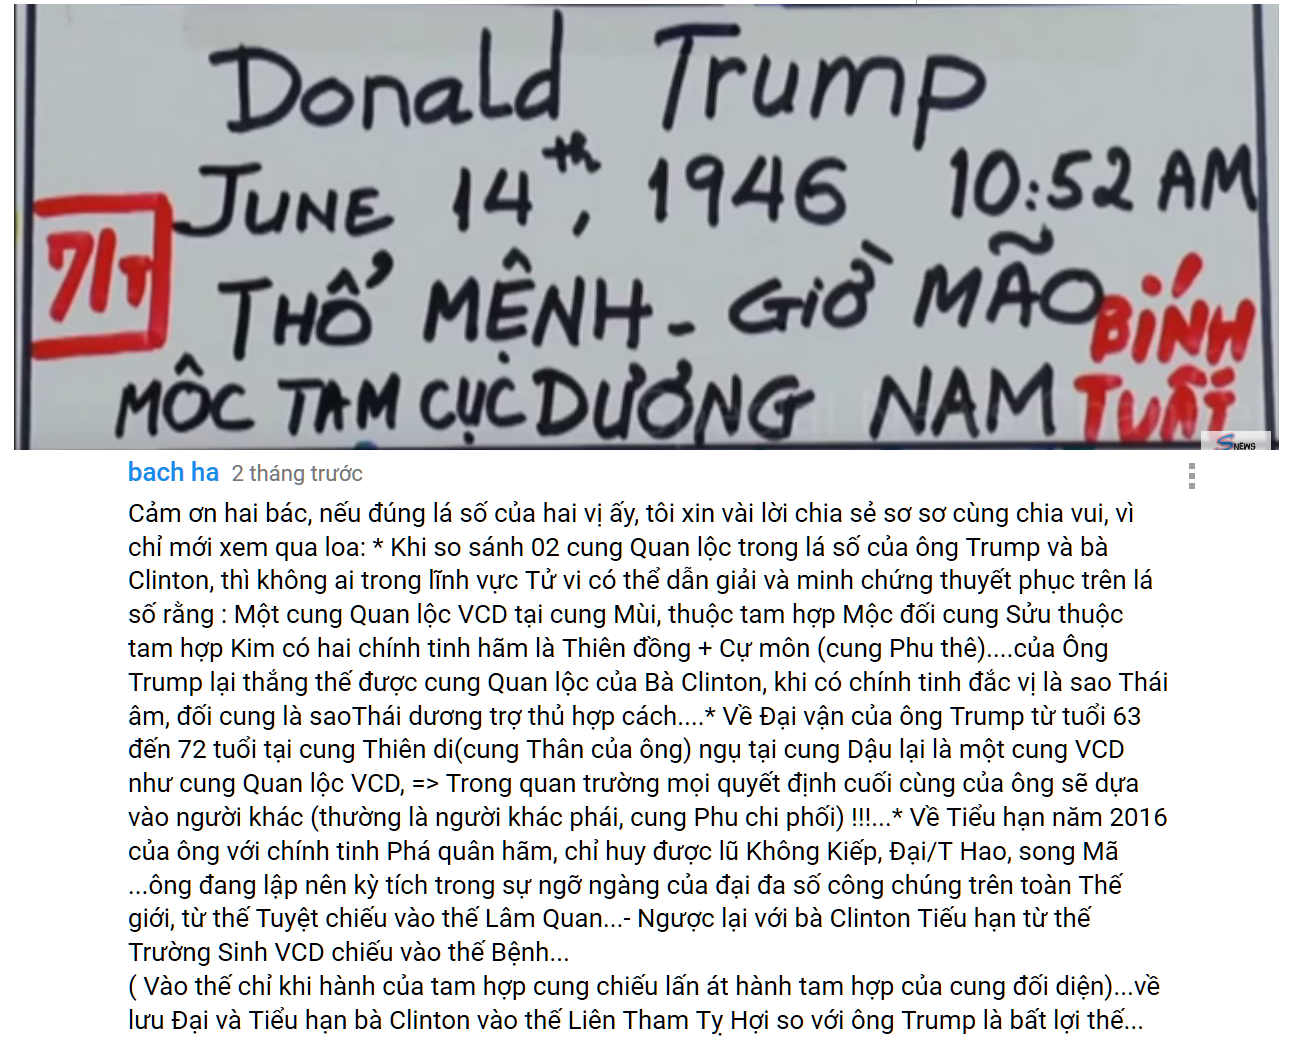 Donald Trump
JUNE 14th, 1946 10:52 AM
7/T
THỔ MỆNH - GIỜ MÃO
BÍNH
MÔC TAM CỤC DƯƠNG NAM TUẤT
SNEWS
bach ha 2 tháng trước
Cảm ơn hai bác, nếu đúng lá số của hai vị ấy, tôi xin vài lời chia sẻ sơ sơ cùng chia vui, vì
chỉ mới xem qua loa: * Khi so sánh 02 cung Quan lộc trong lá số của ông Trump và bà
Clinton, thì không ai trong lĩnh vực Tử vi có thể dẫn giải và minh chứng thuyết phục trên lá
số rằng : Một cung Quan lộc VCD tại cung Mùi, thuộc tam hợp Mộc đối cung Sửu thuộc
tam hợp Kim có hai chính tinh hãm là Thiên đồng + Cự môn (cung Phu thê)....của Ông
Trump lại thắng thế được cung Quan lộc của Bà Clinton, khi có chính tinh đắc vị là sao Thái
âm, đối cung là saoThái dương trợ thủ hợp cách....* Về Đại vận của ông Trump từ tuổi 63
đến 72 tuổi tại cung Thiên di(cung Thân của ông) ngụ tại cung Dậu lại là một cung VCD
như cung Quan lộc VCD, => Trong quan trường mọi quyết định cuối cùng của ông sẽ dựa
vào người khác (thường là người khác phái, cung Phu chi phối) !!!...* Về Tiểu hạn năm 2016
của ông với chính tinh Phá quân hãm, chỉ huy được lũ Không Kiếp, Đại/T Hao, song Mã
...ông đang lập nên kỳ tích trong sự ngỡ ngàng của đại đa số công chúng trên toàn Thế
giới, từ thế Tuyệt chiếu vào thế Lâm Quan...- Ngược lại với bà Clinton Tiếu hạn từ thế
Trường Sinh VCD chiếu vào thế Bệnh...
( Vào thế chỉ khi hành của tam hợp cung chiếu lấn át hành tam hợp của cung đối diện)...về
lưu Đại và Tiểu hạn bà Clinton vào thế Liên Tham Tỵ Hợi so với ông Trump là bất lợi thế...